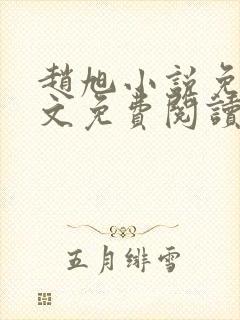 趙旭小說免
文免費閱讀
五月緋雪